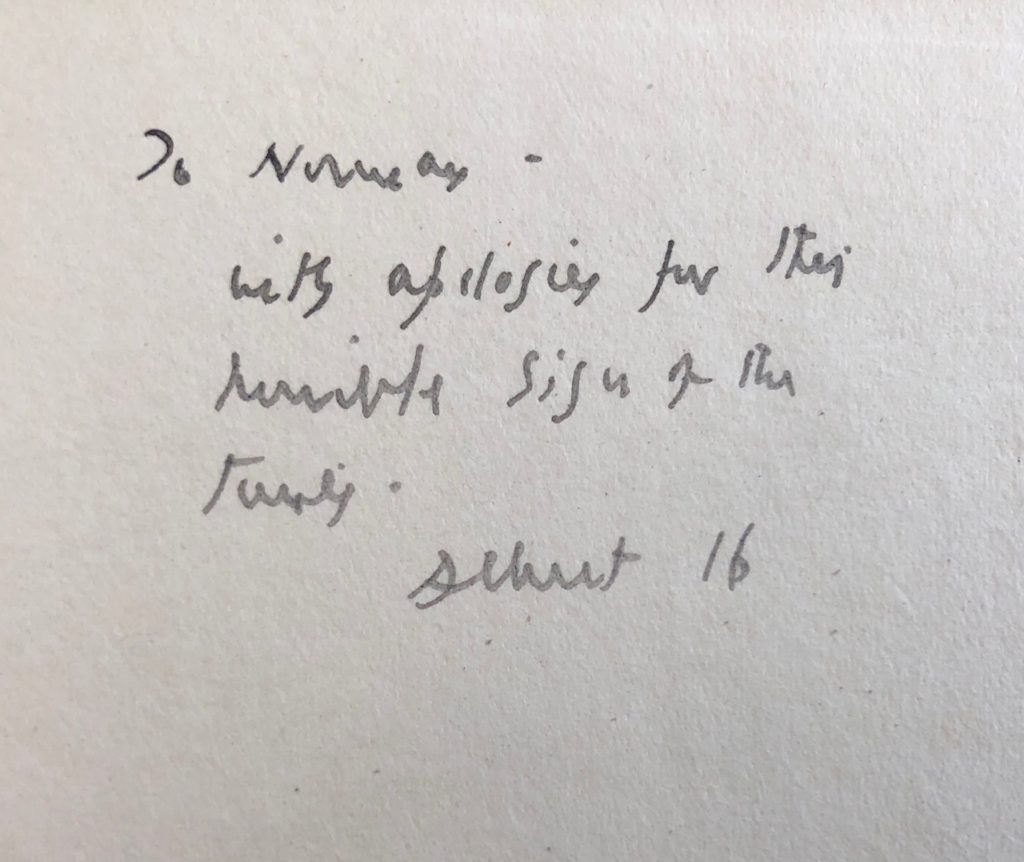 To Norman -
with apologies for this
horrible sign of the
times.
16